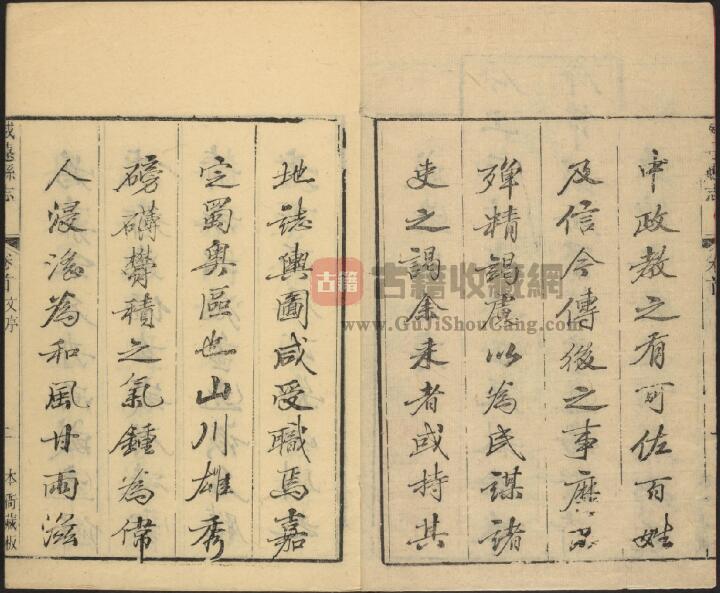 中政教之有可佐百姓
及信今傳後之事靡不
殫精竭慮以為民謀諸
吏之謁余来者或持其
地誌輿圖咸受職焉嘉
定蜀奥區也山川雄秀
磅礴欎積之氣鍾為偉
人浸滛為和風甘雨滋
威遠縣志
卷首 文序
二
本衙藏板
古籍
古籍收藏網
www.GuJiShouCang.com